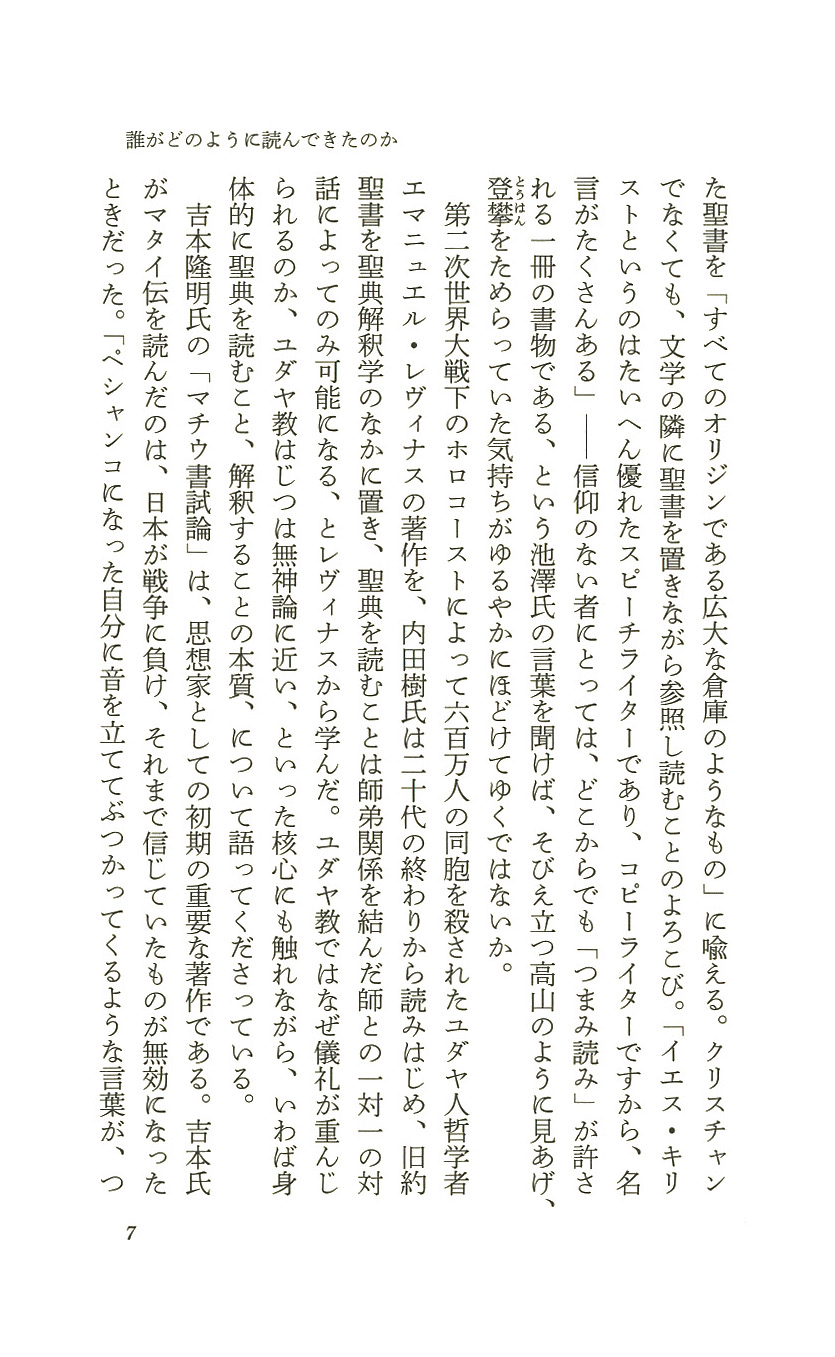 誰がどのように読んできたのか
た聖書を「すべてのオリジンである広大な倉庫のようなもの」に喩える。クリスチャン
でなくても、文学の隣に聖書を置きながら参照し読むことのよろこび。「イエス・キリ
ストというのはたいへん優れたスピーチライターであり、コピーライターですから、名
言がたくさんある」――信仰のない者にとっては、どこからでも「つまみ読み」が許さ
れる一冊の書物である、という池澤氏の言葉を聞けば、そびえ立つ高山のように見あげ、
とうはん
登攀をためらっていた気持ちがゆるやかにほどけてゆくではないか。
第二次世界大戦下のホロコーストによって六百万人の同胞を殺されたユダヤ人哲学者
エマニュエル・レヴィナスの著作を、内田樹氏は二十代の終わりから読みはじめ、旧約
聖書を聖典解釈学のなかに置き、聖典を読むことは師弟関係を結んだ師との一対一の対
話によってのみ可能になる、とレヴィナスから学んだ。ユダヤ教ではなぜ儀礼が重んじ
られるのか、ユダヤ教はじつは無神論に近い、といった核心にも触れながら、いわば身
体的に聖典を読むこと、解釈することの本質、について語ってくださっている。
吉本隆明氏の「マチウ書試論」は、思想家としての初期の重要な著作である。吉本氏
がマタイ伝を読んだのは、日本が戦争に負け、それまで信じていたものが無効になった
ときだった。「ペシャンコになった自分に音を立ててぶつかってくるような言葉が、つ
7